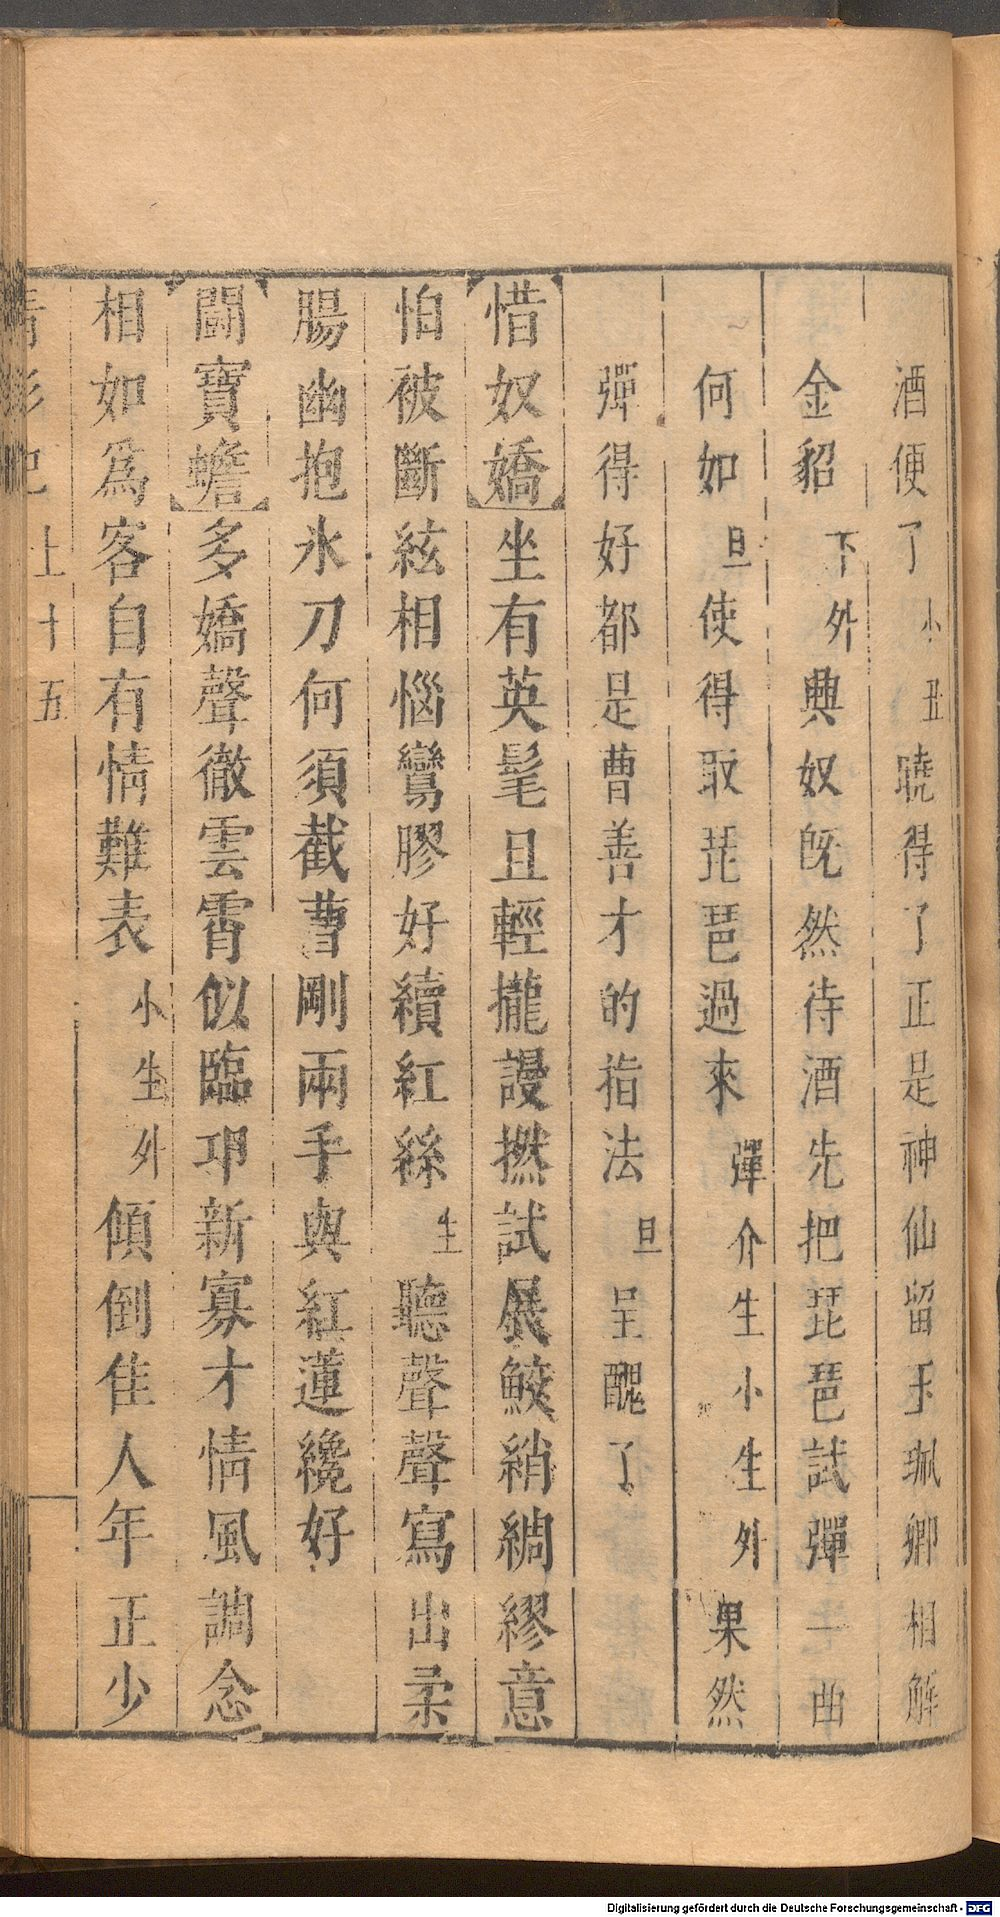 酒便了小丑曉得了正是神仙留玉珮卿相解
金貂下外興奴既然待酒先把琵琶試彈一曲
何如旦使得取琵琶過來彈介生小生外果然
彈得好都是曹善才的指法旦呈醜了
惜奴嬌坐有英髦且輕攏謾撚試展鮫綃綢繆意
怕被斷絃相惱鸞膠好續紅絲生聽聲聲寫出柔
腸幽抱氷刀何須截曹剛兩手與紅蓮纔好
鬪寶蟾多嬌聲徹雲霄似臨卭新寡才情風調念
相如爲客自有情難表小生外傾倒佳人年正少
上十五
Digitalisierung gefördert durch die Deutsche Forschungsgemeinschaft - DFG